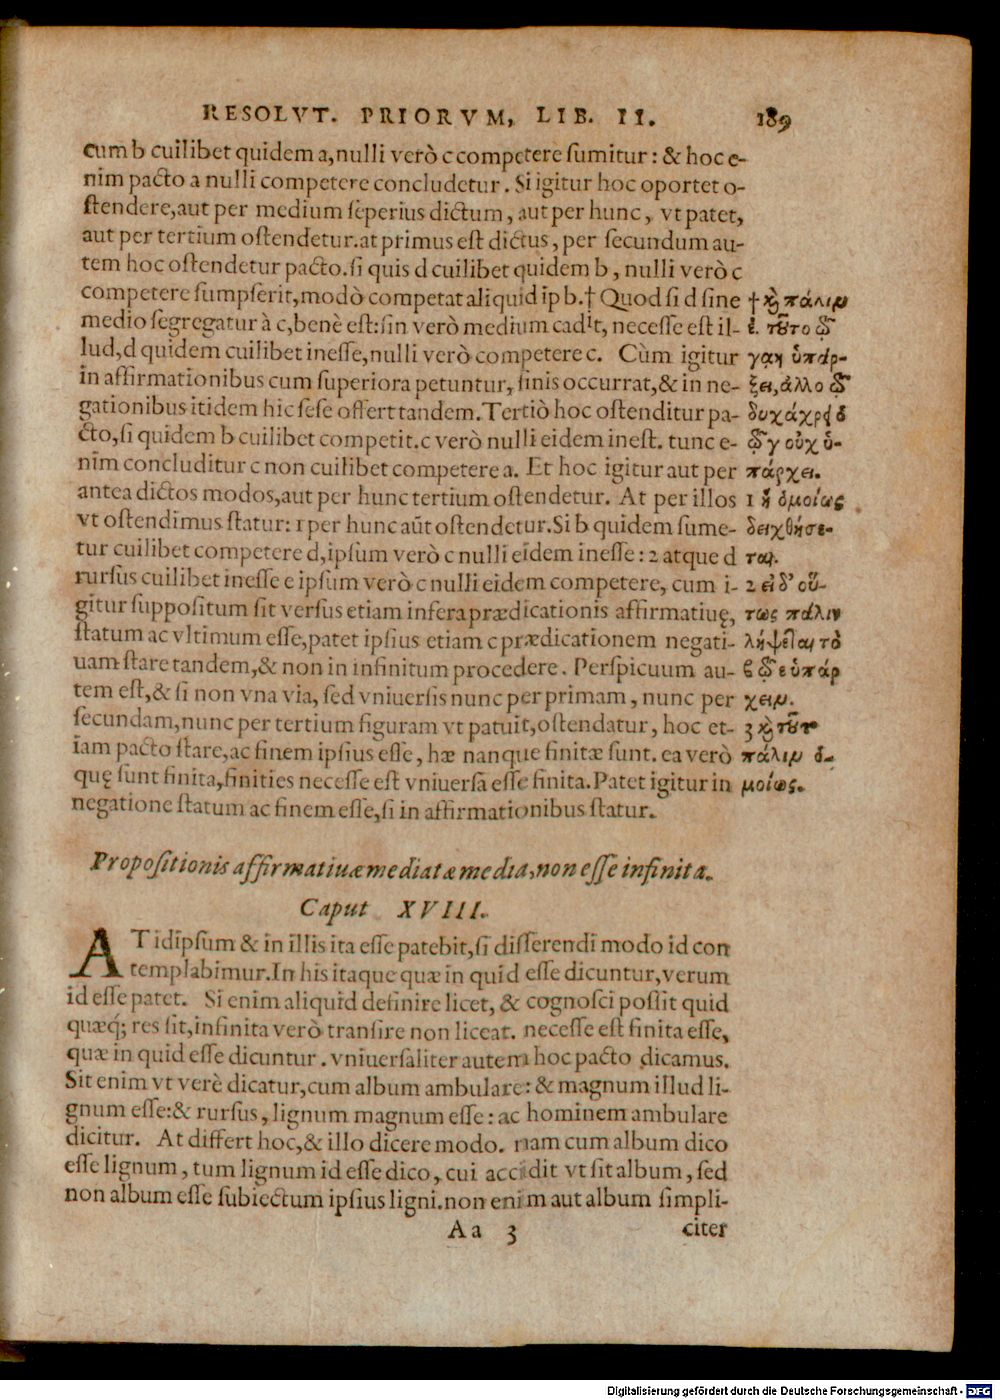 RESOLVT. PRIORVM, LIB. II. 189
cum b cuilibet quidem a, nulli verò c competere sumitur: & hoc e-
nim pacto a nulli competere concludetur. Si igitur hoc oportet o-
stendere, aut per medium seperius dictum, aut per hunc, vt patet,
aut per tertium ostendetur. at primus est dictus, per secundum au-
tem hoc ostendetur pacto. si quis d cuilibet quidem b, nulli verò c
competere sumpserit, modò competat aliquid ip b. † Quod si d sine
medio segregatur à c, benè est: sin verò medium cadit, necesse est il-
lud, d quidem cuilibet inesse, nulli verò competere c. Cùm igitur
in affirmationibus cum superiora petuntur, finis occurrat, & in ne-
gationibus itidem hic sese offert tandem. Tertiò hoc ostenditur pa-
cto, si quidem b cuilibet competit. c verò nulli eidem inest. tunc e-
nim concluditur c non cuilibet competere a. Et hoc igitur aut per
antea dictos modos, aut per hunc tertium ostendetur. At per illos
vt ostendimus statur: 1 per hunc aūt ostendetur. Si b quidem sume-
tur cuilibet competere d, ipsum verò c nulli eidem inesse: 2 atque d
rursus cuilibet inesse e ipsum verò c nulli eidem competere, cum i-
gitur suppositum sit versus etiam infera prædicationis affirmatiuę,
statum ac vltimum esse, patet ipsius etiam c prædicationem negati-
uam stare tandem, & non in infinitum procedere. Perspicuum au-
tem est, & si non vna via, sed vniuersis nunc per primam, nunc per
secundam, nunc per tertium figuram vt patuit, ostendatur, hoc et-
iam pacto stare, ac finem ipsius esse, hæ nanque finitæ sunt. ea verò
quę sunt finita, finities necesse est vniuersa esse finita. Patet igitur in
negatione statum ac finem esse, si in affirmationibus statur.
† καὶ πάλιν
ἐ. τοῦτο τῷ
ὑπάρ-
ξει, ἄλλο τῷ
τῷ γ οὐχ ὑ-
πάρχει.
1 ἢ ὁμοίως
δειχθήσε-
ται.
2 εἰ δ' οὕ-
τως πάλιν
ληψεται τὸ
β τῷ ε ὑπάρ
χειν.
3 καὶ τοῦτ
πάλιν ὁ-
μοίως.
Propositionis affirmatiuæ mediatæ media, non esse infinita.
Caput XVIII.
AT idipsum & in illis ita esse patebit, si disserendi modo id con
templabimur. In his itaque quæ in quid esse dicuntur, verum
id esse patet. Si enim aliquid definire licet, & cognosci possit quid
quæq; res sit, infinita verò transire non liceat. necesse est finita esse,
quæ in quid esse dicuntur. vniuersaliter autem hoc pacto dicamus.
Sit enim vt verè dicatur, cum album ambulare: & magnum illud li-
gnum esse: & rursus, lignum magnum esse: ac hominem ambulare
dicitur. At differt hoc, & illo dicere modo. nam cum album dico
esse lignum, tum lignum id esse dico, cui accidit vt sit album, sed
non album esse subiectum ipsius ligni. non enim aut album simpli-
Aa 3 citer
Digitalisierung gefördert durch die Deutsche Forschungsgemeinschaft - DFG